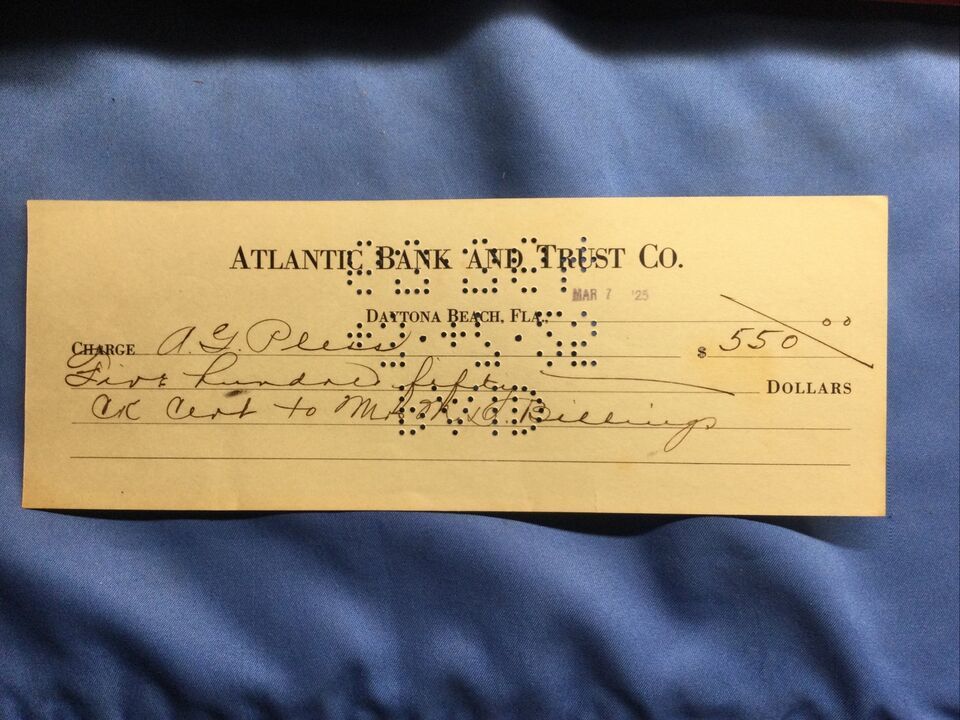 ATLANTIC BANK AND TRUST CO.
MAR 7 '25
DAYTONA BEACH, FLA.,
CHARGE A. G. Pless $ 550 00
Five hundred fifty DOLLARS
CK Cert to Billings